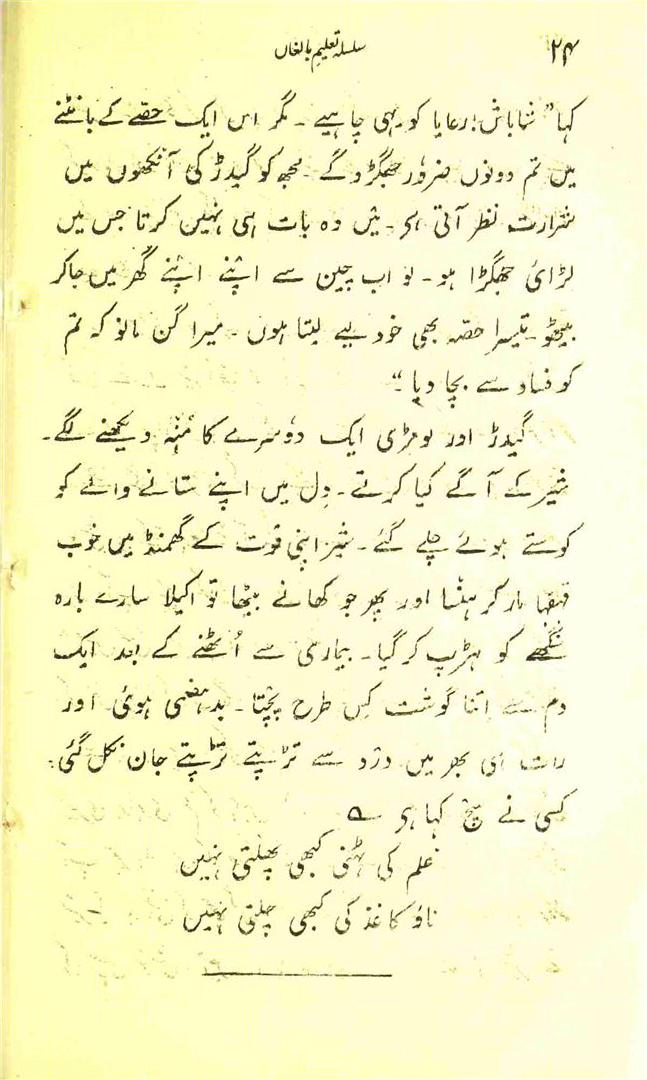 ۲۴ سلسلہ تعلیم بالغاں
کہا "شاباش! رعایا کو یہی چاہیے۔ مگر اس ایک حصّے کے بانٹنے
میں تم دونوں ضرور جھگڑوگے۔ مجھ کو گیدڑ کی آنکھوں میں
شرارت نظر آتی ہی۔ میں وہ بات ہی نہیں کرتا جس میں
لڑائی جھگڑا ہو۔ لو اب چین سے اپنے اپنے گھر میں جاکر
بیٹھو۔ تیسرا حصہ بھی خود لیے لیتا ہوں۔ میرا گن مانو کہ تم
کو فساد سے بچا دیا۔"
گیدڑ اور لومڑی ایک دوسرے کا مُنہ دیکھنے لگے۔
شیر کے آگے کیا کرتے۔ دِل میں اپنے ستانے والے کو
کوستے ہوئے چلے گئے۔ شیر اپنی قوت کے گھمنڈ میں خوب
قہقہا مار کر ہنسا اور پھر جو کھانے بیٹھا تو اکیلا سارے بارہ
سنگھے کو ہڑپ کر گیا۔ بیماری سے اُٹھنے کے بعد ایک
دم سے اِتنا گوشت کِس طرح پچتا۔ بدہضمی ہوئی اور
رات ہی بھر میں درد سے تڑپتے تڑپتے جان نکل گئی۔
کسی نے سچ کہا ہی ؎
ظلم کی ٹہنی کبھی پھلتی نہیں
ناؤ کاغذ کی کبھی چلتی نہیں